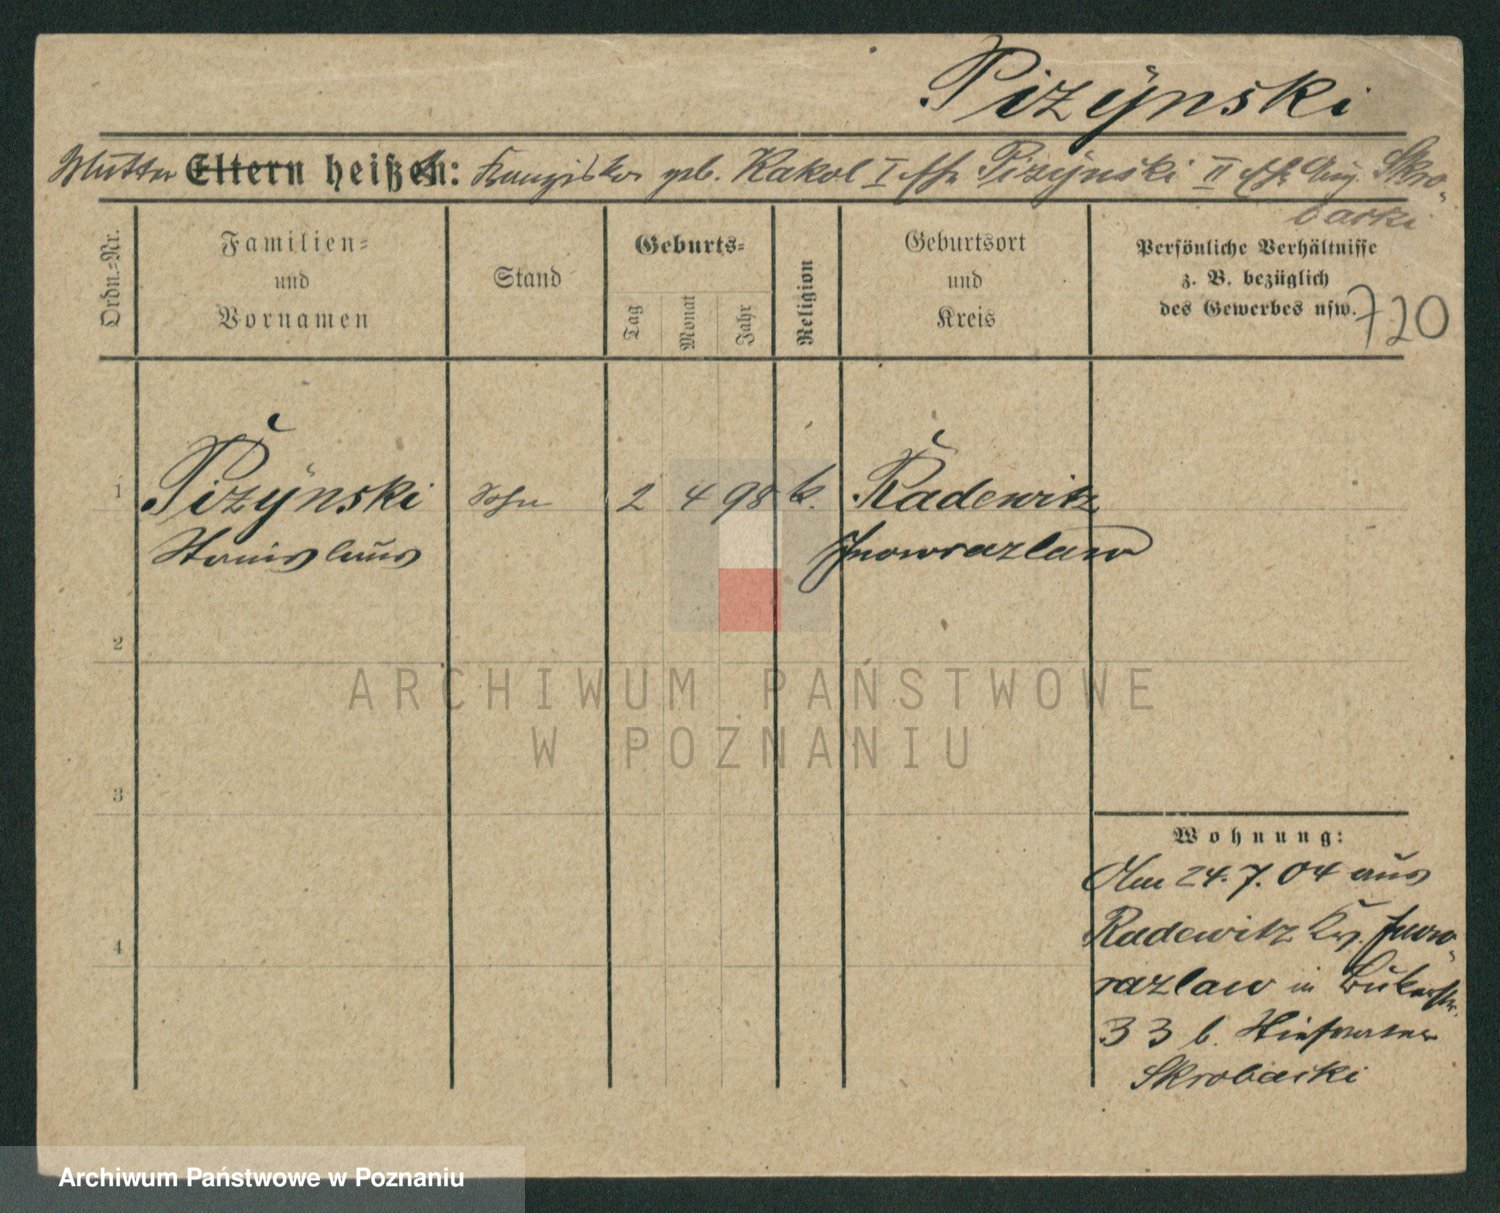 Pizÿnski
Mutter Eltern heißt: Franziska geb. Kakol I. Ehe Pizÿnski II Ehe Aug. Skro-
barki
Ordn.-Nr.
Familien-
und
Vornamen
Stand
Geburts-
Tag
Monat
Jahr
Religion
Geburtsort
und
Kreis
Persönliche Verhältnisse
z. B. bezüglich
des Gewerbes usw.
720
1 Pizÿnski Sohn 2 4 98 k. Radewitz
Stanislaus Inowrazlaw
2
3
4
Wohnung:
Am 24.7.04 aus
Radewitz Kr. Inow-
razlaw in Bukerstr.
33 b. Stiefvater
Skrobacki
ARCHIWUM PAŃSTWOWE
W POZNANIU
Archiwum Państwowe w Poznaniu